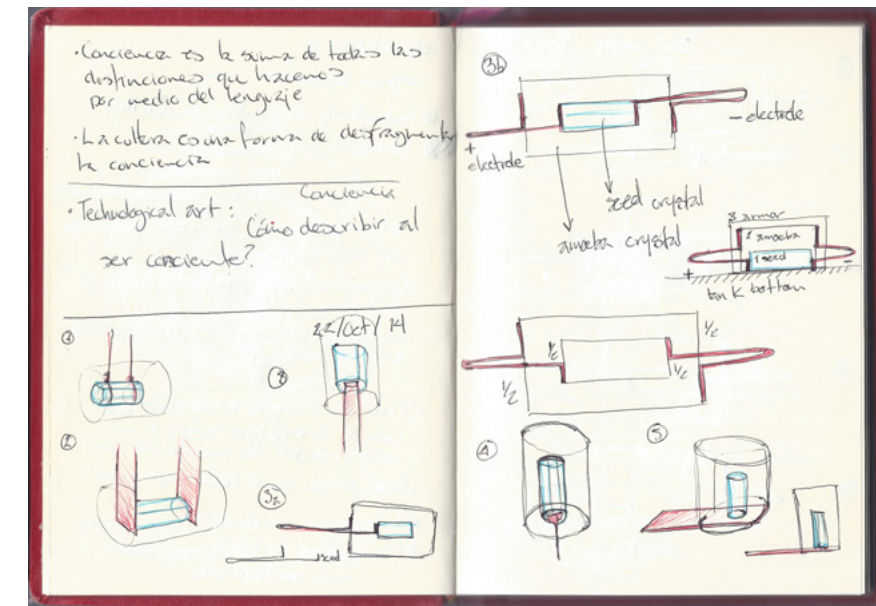 · Conciencia es la suma de todas las
distinciones que hacemos
por medio del lenguaje
· La cultura es una forma de desfragmentar
la conciencia
Conciencia
· Technological art :
Cómo describir al
ser consciente?
22/Oct/14
1
2
3
3a
seed
3b
- electrode
+
electrode
seed crystal
amoeba crystal
3 armor
2 amoeba
1 seed
+
-
tank bottom
1/2
1/2
1/2
1/2
4
5